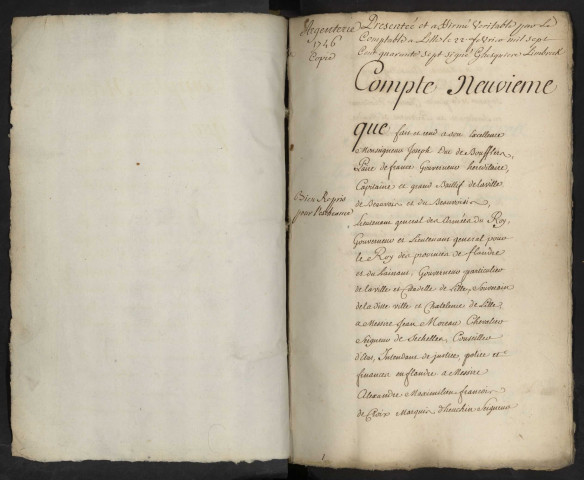 Argenterie
1746
Copie
Presentée et affirmé Veritable par Le
Comptable a Lille le 22 fevrier mil sept
Cent quarante sept signé Ghesquiere
Compte Neuvieme
que fait et rend a son Excellence
Monseigneur Joseph Duc de Boufflers,
Paire de france Gouverneur hereditaire,
Capitaine et grand Baillif de la ville
Bien Repris
pour l'ordonnance
de Beauvais et du Beauvaisis,
Lieutenant general des Armées du Roy,
Gouverneur et Lieutenant general pour
le Roy des provinces de flandre
et du hainaut, Gouverneur particulier
de la ville et Citadelle de Lille, Souverain
de la ditte ville et Chatelenie de Lille,
a Messire Jean Moreau Chevalier
Seigneur de Sechelles, Conseiller
d'etat, Intendant de justice, police et
finances en flandre a Messire
Alexandre Maximilien francois
de Croix Marquis d'heuchin Seigneur